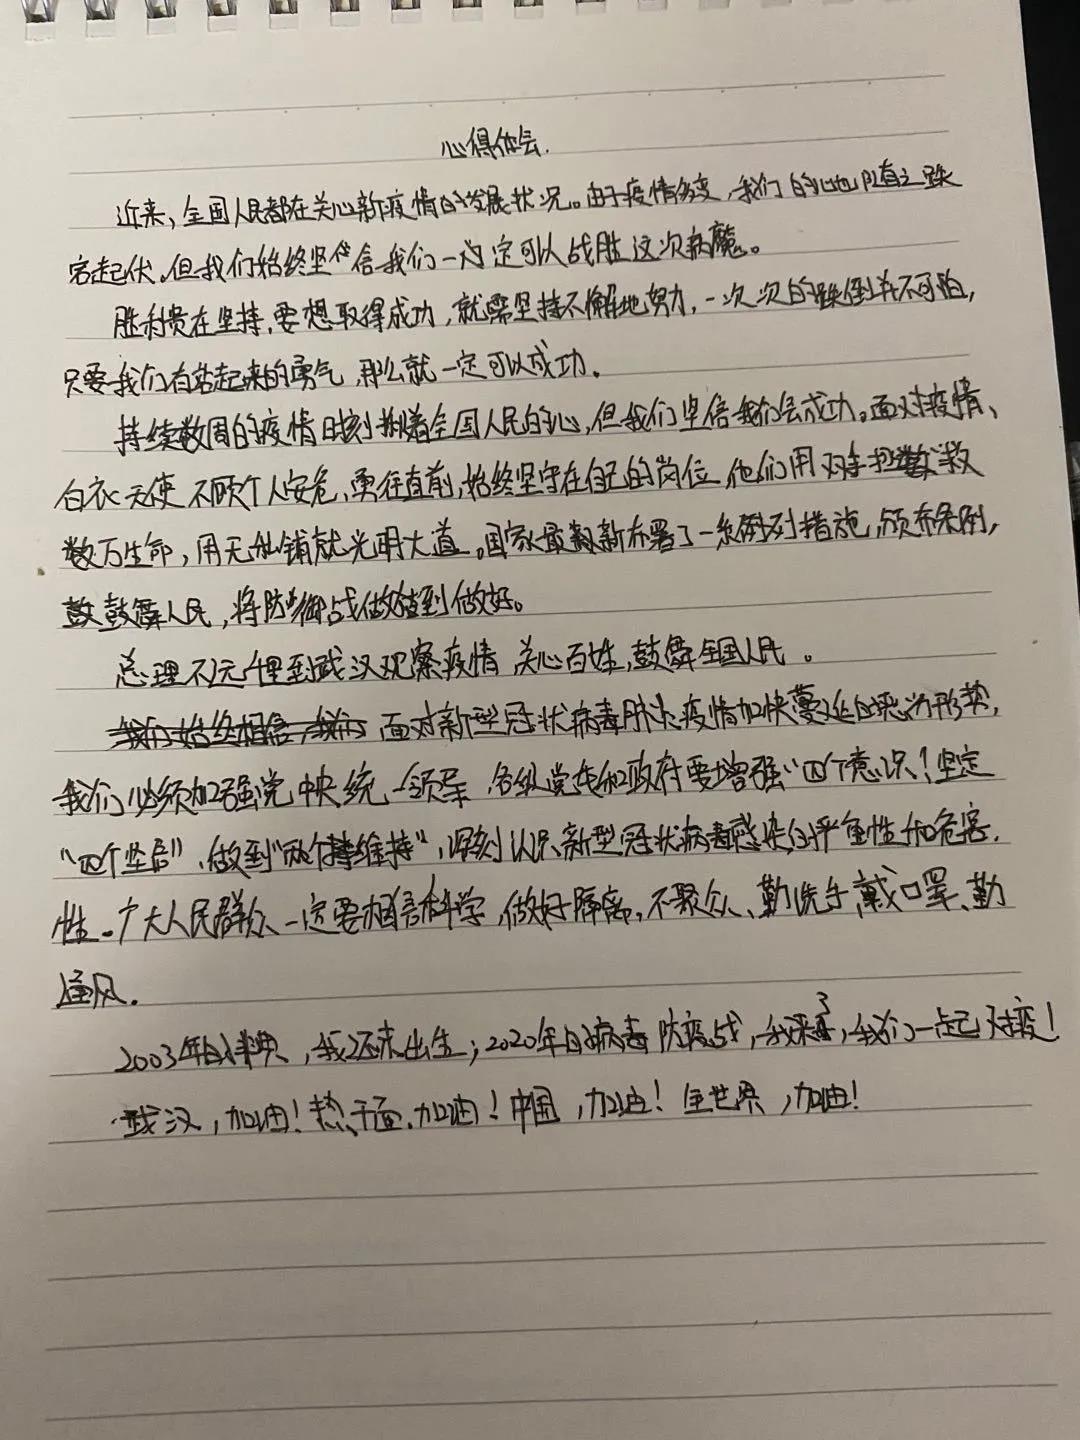 心得体会.
近来,全国人民都在关心新疫情的发展状况。由于疫情多变,我们的心也随之跌
宕起伏.但我们始终坚信我们一定可以战胜这次病魔。
胜利贵在坚持,要想取得成功,就需坚持不懈地努力,一次次的跌倒并不可怕,
只要我们有站起来的勇气,那么就一定可以成功.
持续数周的疫情时刻揪着全国人民的心,但我们坚信我们会成功。面对疫情、
白衣天使不顾个人安危,勇往直前,始终坚守在自己的岗位,他们用双手拯救
数万生命,用无私铺就光明大道。国家最新布署了一系列措施,颁布条例,
鼓舞人民,将防御战做到做好。
总理不远千里到武汉观察疫情,关心百姓,鼓舞全国人民。
我们始终相信,我们 面对新型冠状病毒肺炎疫情加快蔓延的形势,
我们必须加强党中央统一领导,各级党委和政府要增强"四个意识"!坚定
"四个坚信",做到"两个维持",深刻认识新型冠状病毒感染的严重性和危害.
性.广大人民群众一定要相信科学,做好隔离,不聚众、勤洗手,戴口罩、勤
通风.
2003年的非典,我还未出生;2020年的病毒防疫战,我来了,我们一起对疫!
武汉,加油!热干面,加油!中国,加油!全世界,加油!